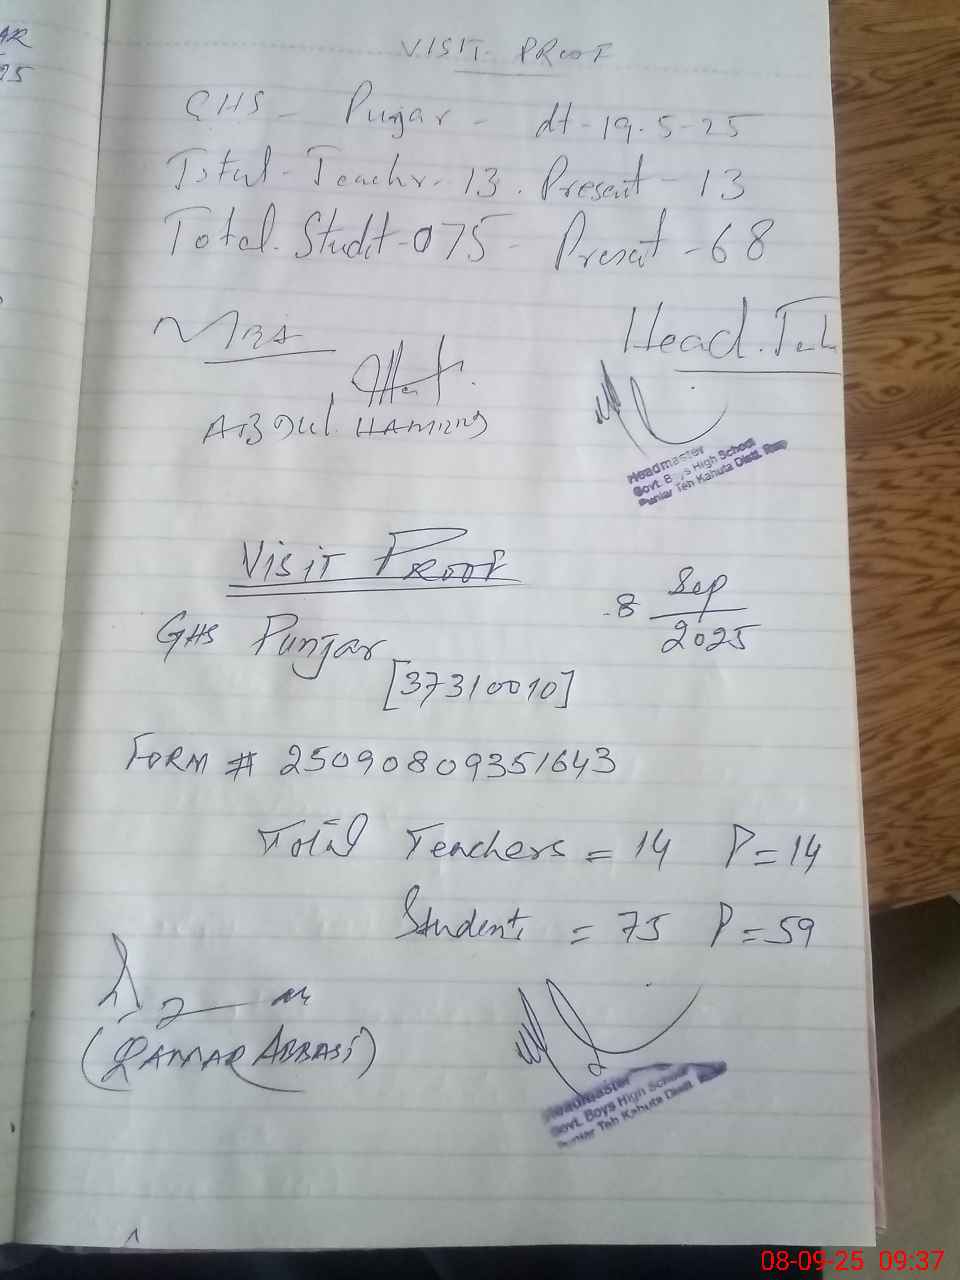 AR
25
VISIT PROOF
GHS - Punjar - dt-19.5-25
Total-Teachr-13. Present-13
Total.Studt-075- Presat-68
Head.Teh
ABDUL. HAMEED
Headmaster
Govt. Boys High School
Punjar Teh Kahuta Distt. Rwp
VISIT PROOF
8 Sep
2025
GHS Punjar
[37310010]
FORM # 25090809351643
Total Teachers = 14 P=14
Students = 75 P=59
(QAMAR ABBASI)
Headmaster
Govt. Boys High School
Punjar Teh Kahuta Distt. Rwp
08-09-25 09:37